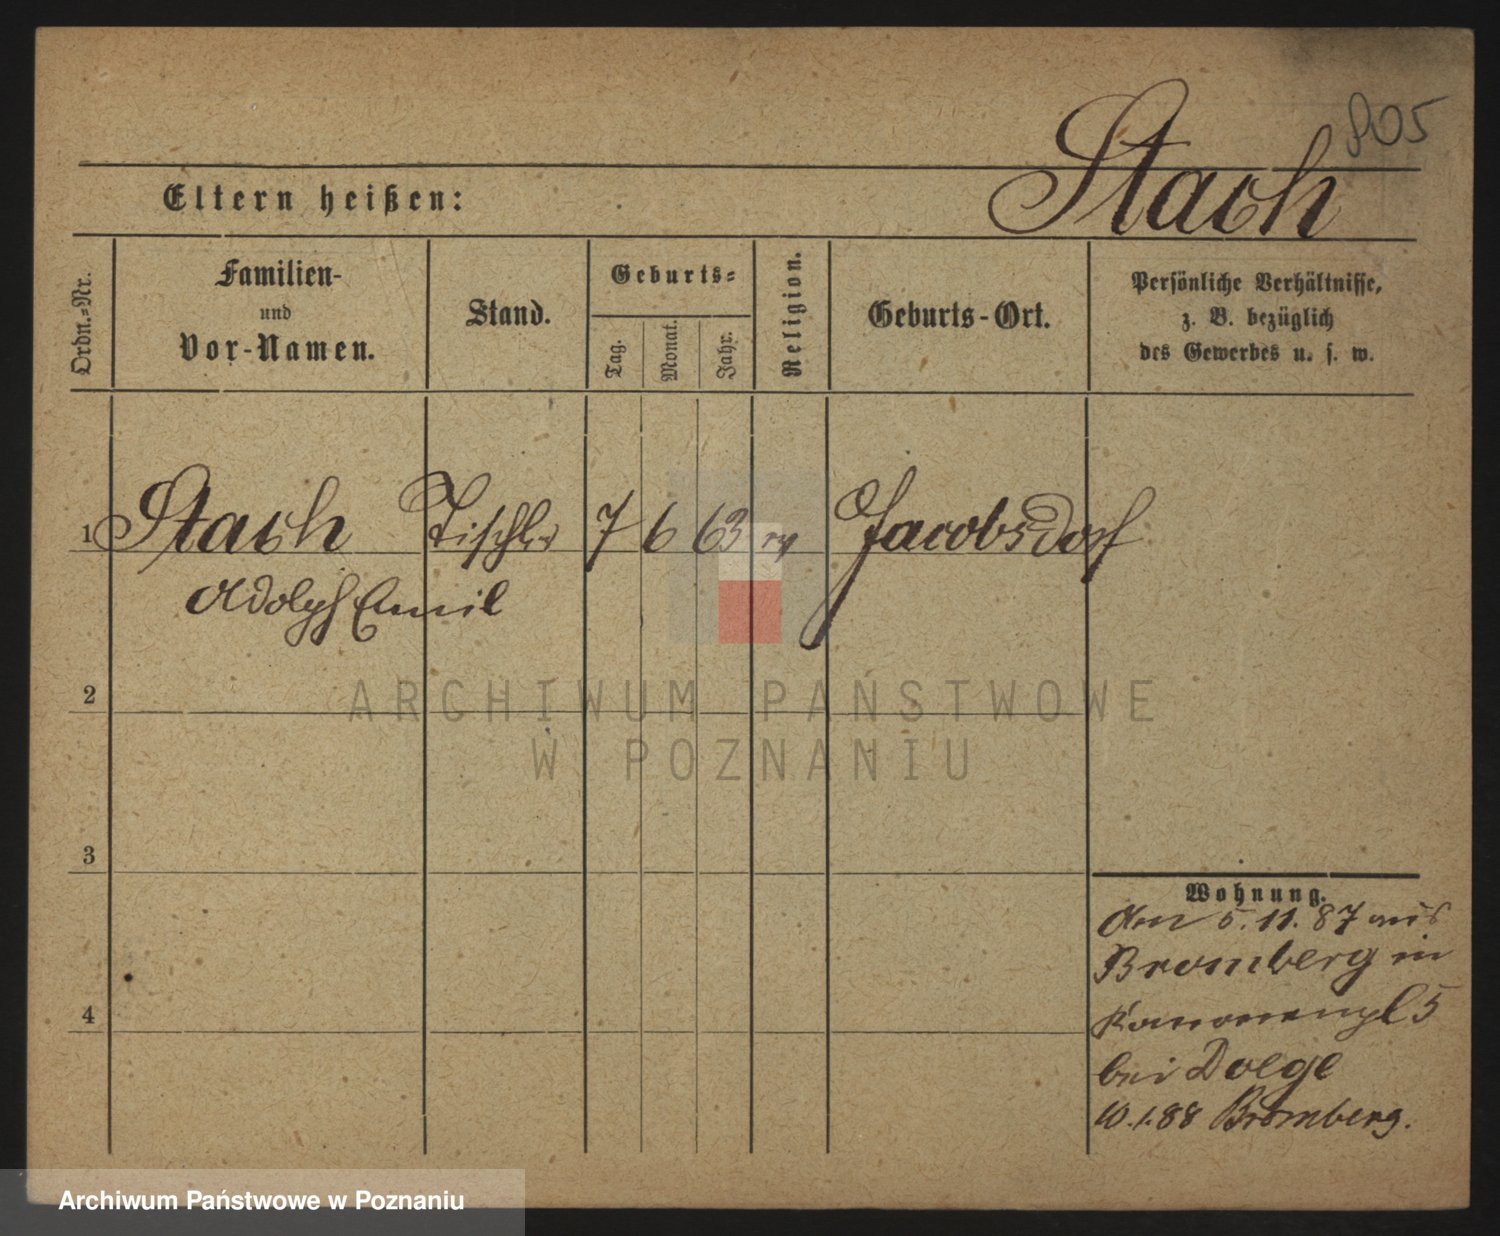 805
Stach
Eltern heißen:
Ordn.=Nr.
Familien-
und
Vor-Namen.
Stand.
Geburts=
Tag.
Monat.
Jahr.
Religion.
Geburts-Ort.
Persönliche Verhältnisse,
z. B. bezüglich
des Gewerbes u. s. w.
1 Stach Tischler 7 6 63 ev Jacobsdorf
Adolph Emil
2
3
4
Wohnung.
den 5.11.87 aus
Bromberg in
Kanonenpl 5
bei Doege
10.1.88 Bromberg.
ARCHIWUM PAŃSTWOWE
W POZNANIU
Archiwum Państwowe w Poznaniu